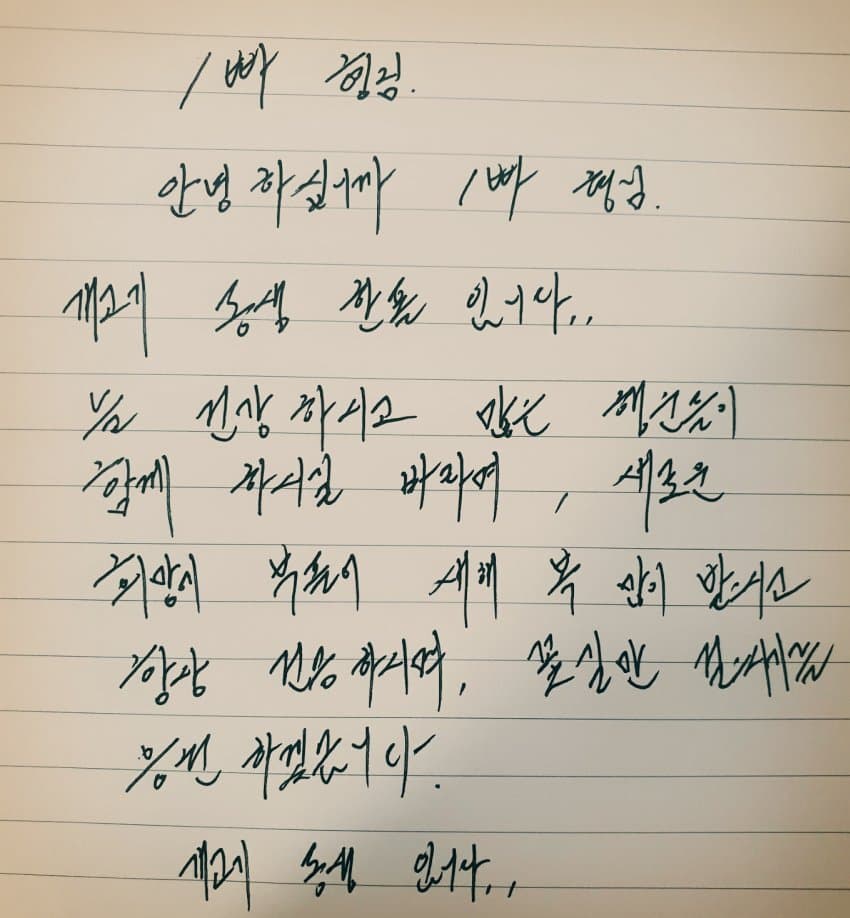 1빠 형님.
안녕 하십니까 1빠 형님.
개고기 동생 한울 입니다..
늘 건강 하시고 많은 행운들이
함께 하시실 바라며, 새로운
희망이 새해 복 많이 받으시고
항상 건강 하시며,
응원 하겠습니다.
개고기 동생 입니다..